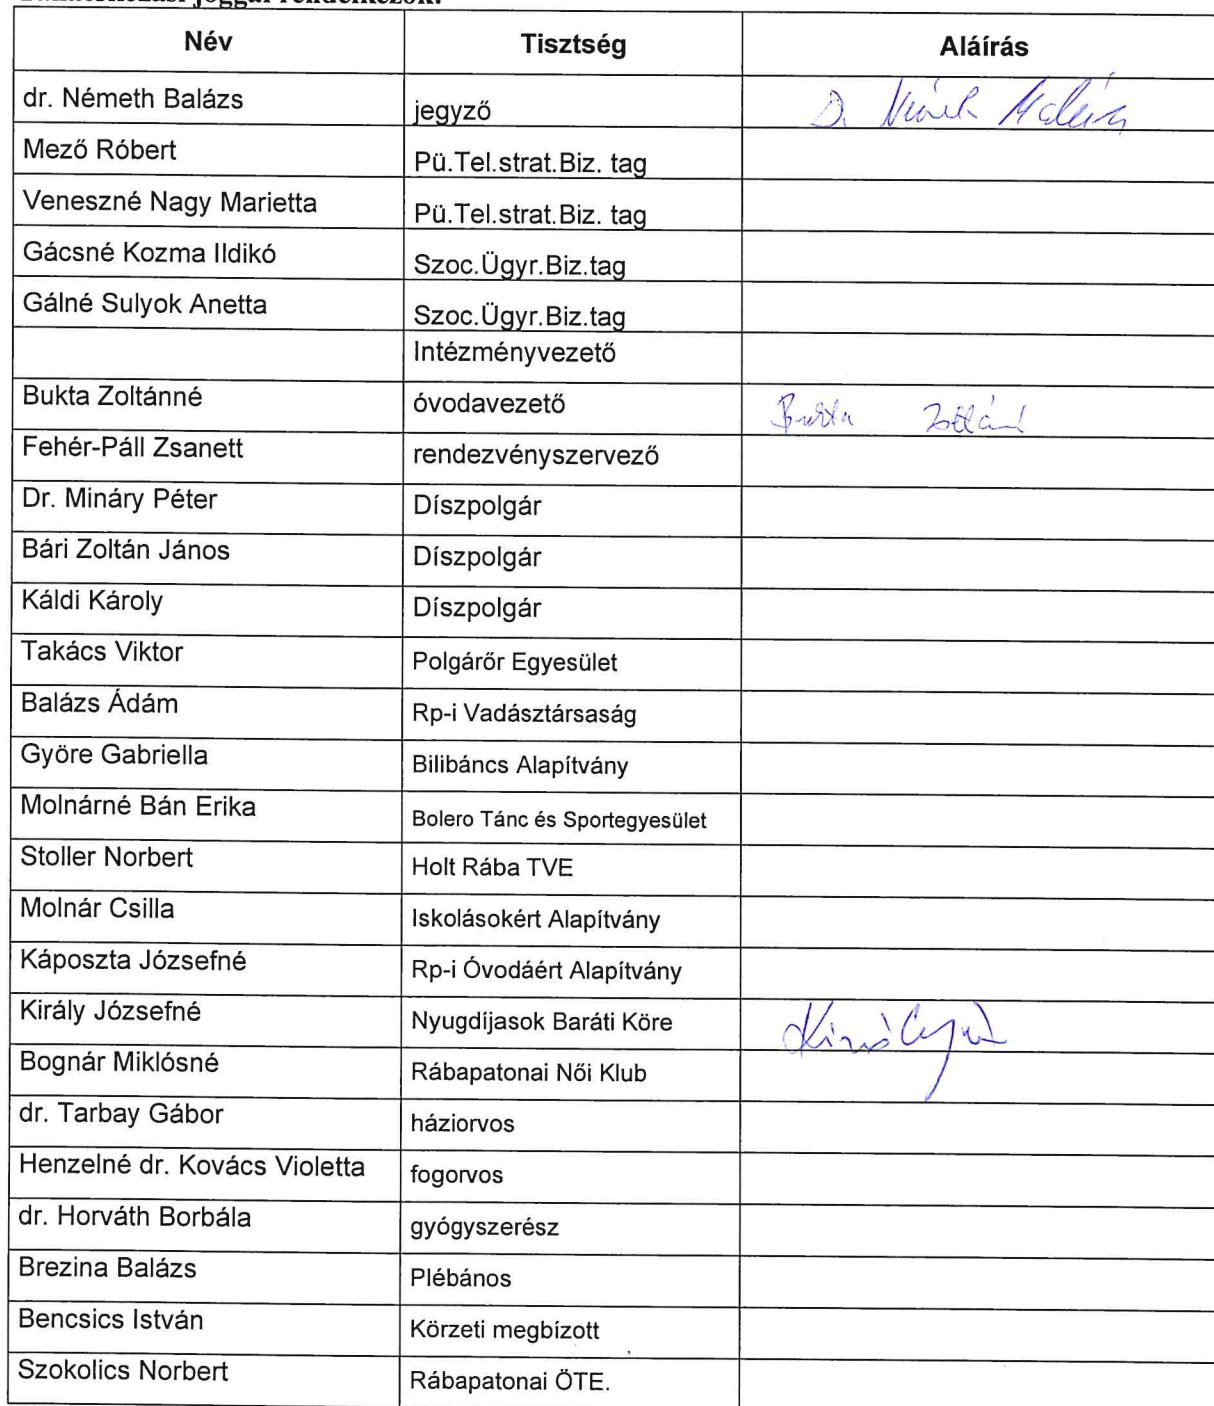 joggal rendelkezők:
Név Tisztség Aláírás
dr. Németh Balázs jegyző
Mező Róbert Pü.Tel.strat.Biz. tag
Veneszné Nagy Marietta Pü.Tel.strat.Biz. tag
Gácsné Kozma Ildikó Szoc.Ügyr.Biz.tag
Gálné Sulyok Anetta Szoc.Ügyr.Biz.tag
Intézményvezető
Bukta Zoltánné óvodavezető
Fehér-Páll Zsanett rendezvényszervező
Dr. Mináry Péter Díszpolgár
Bári Zoltán János Díszpolgár
Káldi Károly Díszpolgár
Takács Viktor Polgárőr Egyesület
Balázs Ádám Rp-i Vadásztársaság
Györe Gabriella Bilibáncs Alapítvány
Molnárné Bán Erika Bolero Tánc és Sportegyesület
Stoller Norbert Holt Rába TVE
Molnár Csilla Iskolásokért Alapítvány
Káposzta Józsefné Rp-i Óvodáért Alapítvány
Király Józsefné Nyugdíjasok Baráti Köre
Bognár Miklósné Rábapatonai Női Klub
dr. Tarbay Gábor háziorvos
Henzelné dr. Kovács Violetta fogorvos
dr. Horváth Borbála gyógyszerész
Brezina Balázs Plébános
Bencsics István Körzeti megbízott
Szokolics Norbert Rábapatonai ÖTE.